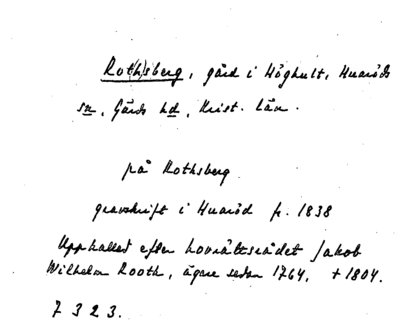 Rot(h)sberg, gård i Höghult, Huaröds
sn, Gärds hd, Krist. län.
på Rothsberg
gravskrift i Huaröd fr. 1838
Upphallad efter hovrättsrådet Jakob
Wilhelm Rooth, ägare sedan 1764, + 1804.
7323.